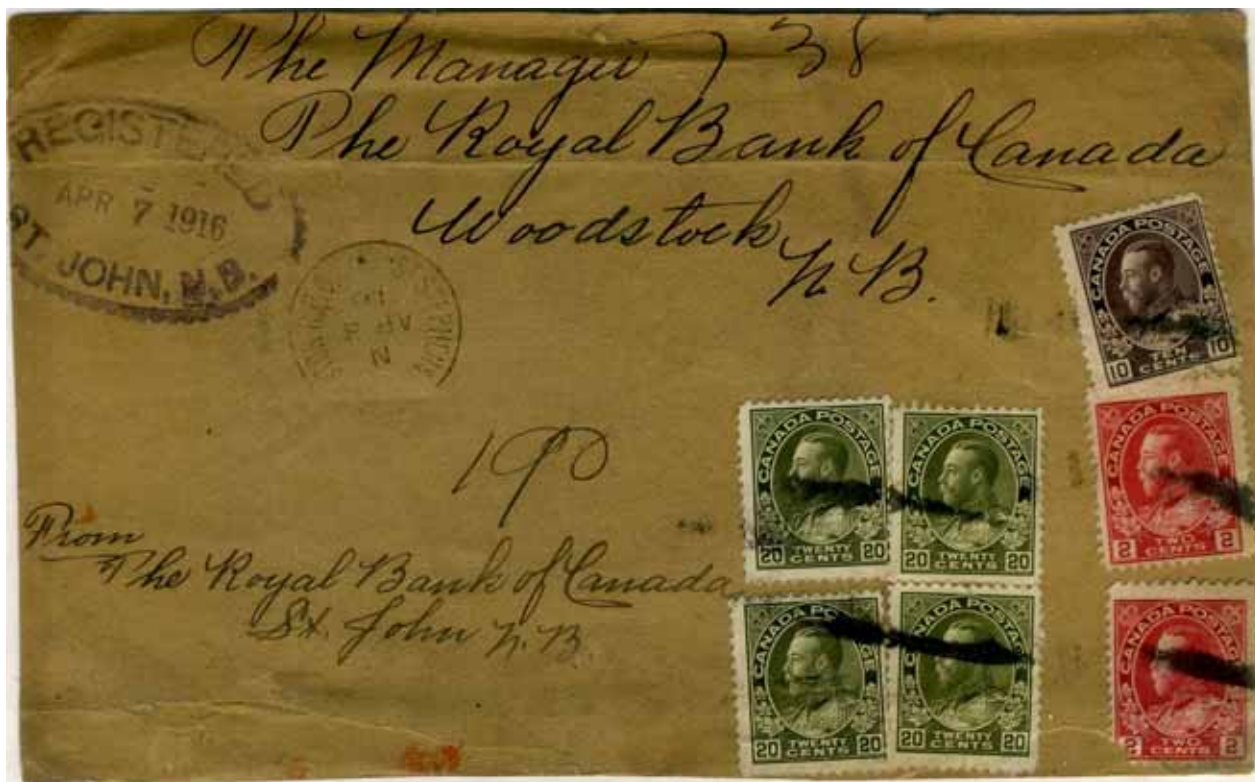 The Manager 38
The Royal Bank of Canada
Woodstock
N.B.
REGISTERED
APR 7 1916
ST. JOHN, N.B.
190
From
The Royal Bank of Canada
St. John N.B.
CANADA POSTAGE
10 TEN CENTS 10
CANADA POSTAGE
20 TWENTY CENTS 20
CANADA POSTAGE
20 TWENTY CENTS 20
CANADA POSTAGE
2 TWO CENTS 2
CANADA POSTAGE
20 TWENTY CENTS 20
CANADA POSTAGE
20 TWENTY CENTS 20
CANADA POSTAGE
2 TWO CENTS 2